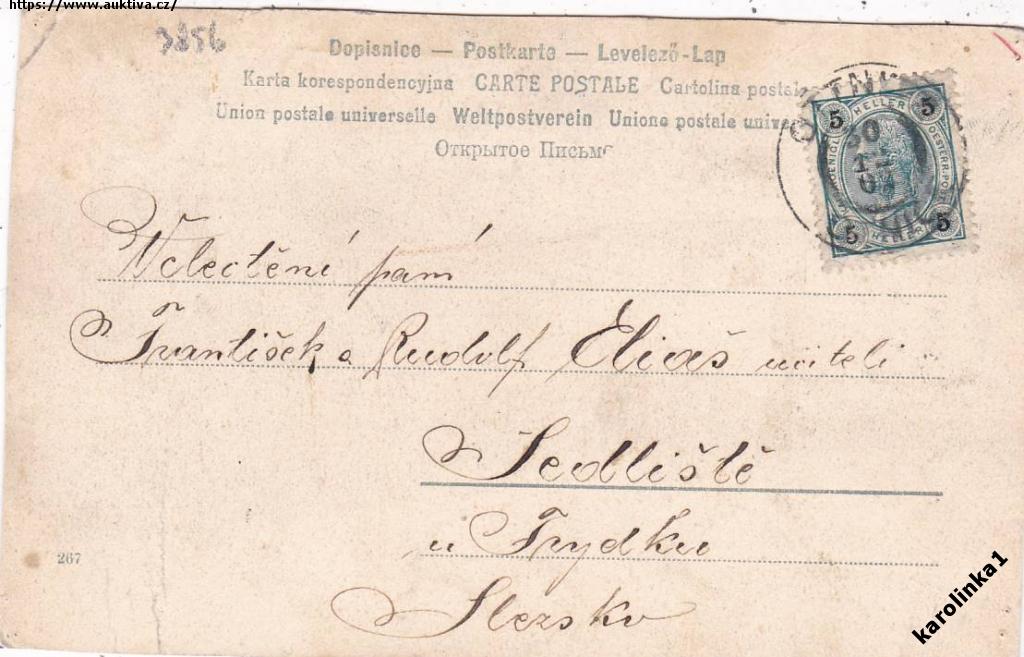 https://www.auktiva.cz/
3856
Dopisnice — Postkarte — Levelező-Lap
Karta korespondencyjna CARTE POSTALE Cartolina postale
Union postale universelle Weltpostverein Unione postale univer
Открытое Письмо
5 HELLER 5
OESTERR. POST
5 HELLER 5
30
Velectění páni
František a Rudolf Eliaš učiteli
Sedliště
u Frydku
Slezsko
267
karolinka1